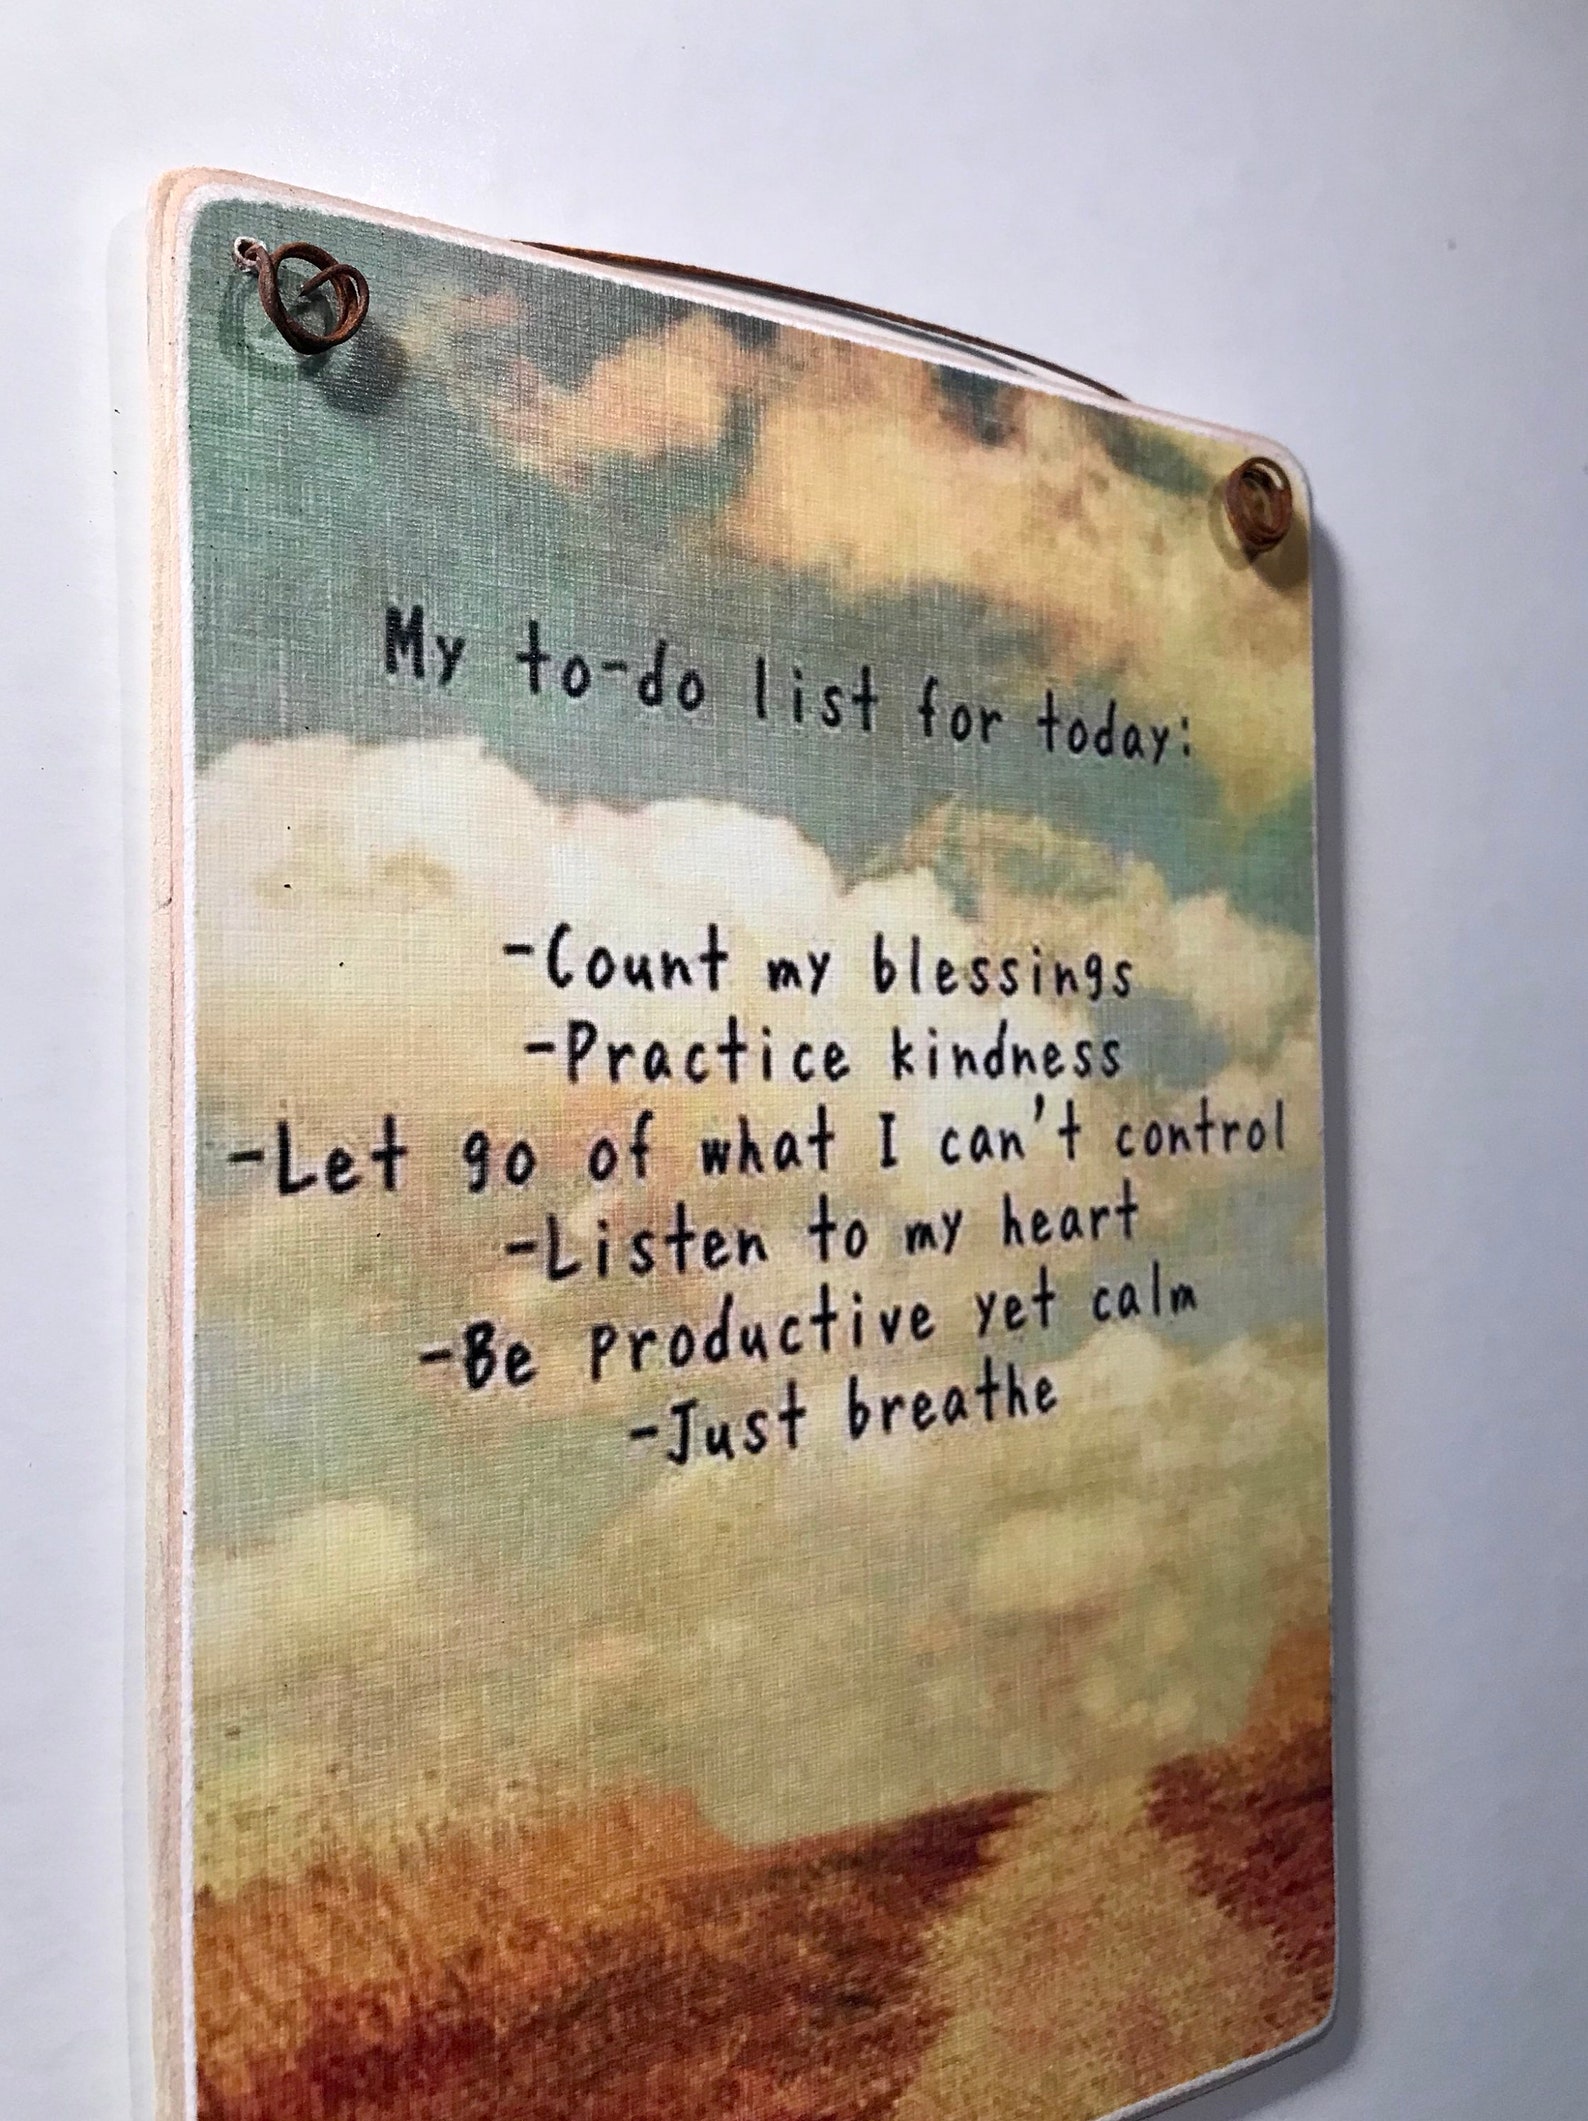 My to-do list for today:
-Count my blessings
-Practice kindness
-Let go of what I can't control
-Listen to my heart
-Be productive yet calm
-Just breathe